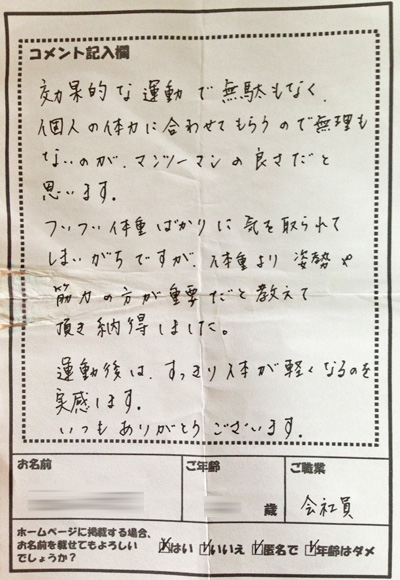 コメント記入欄
効果的な運動で無駄もなく、
個人の体力に合わせてもらうので無理も
ないのが、マンツーマンの良さだと
思います。
ついつい体重ばかりに気を取られて
しまいがちですが、体重より姿勢や
筋力の方が重要だと教えて
頂き納得しました。
運動後は、すっきり体が軽くなるのを
実感します。
いつもありがとうございます。
お名前
ご年齢
歳
ご職業
会社員
ホームページに掲載する場合、
お名前を載せてもよろしい
でしょうか？
はい いいえ 匿名で 年齢はダメ